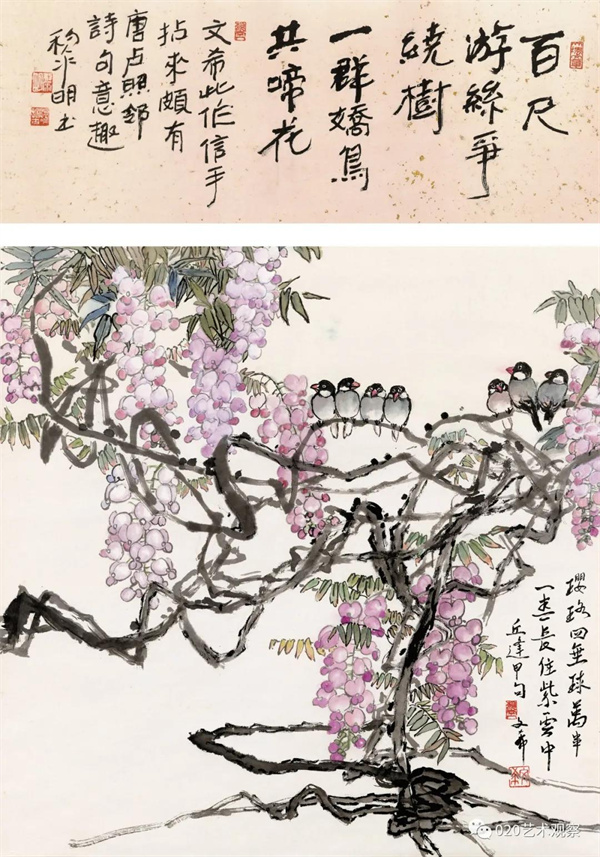 百尺
游絲爭
繞樹
一群嬌鳥
共啼花
文希此作信手
拈來頗有
唐卢照鄰
詩句意趣
瓔珞四垂珠萬
長住紫雲中
丘逢甲句
文希
020艺术观察